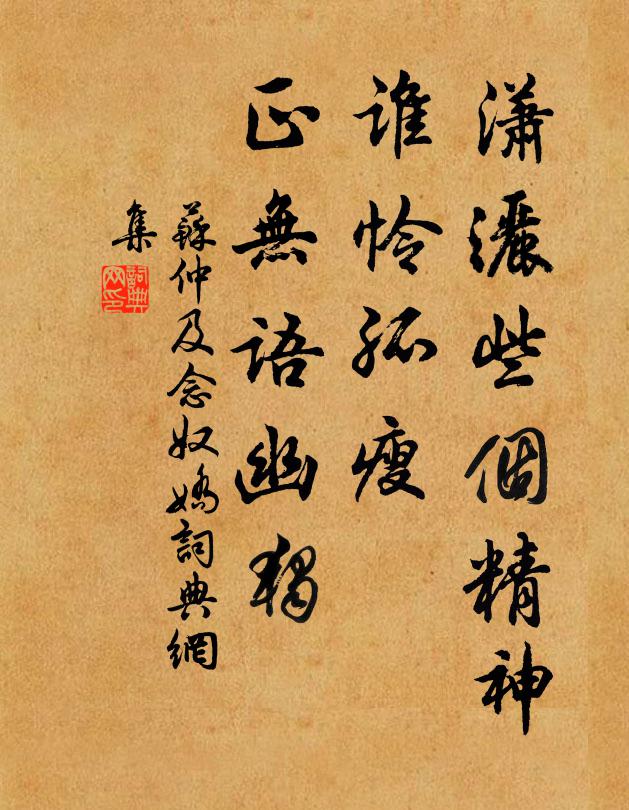 瀟灑些個精神
誰憐孤瘦
正無語幽獨
蘇仲及念奴嬌詞典網
集
詞典
网印